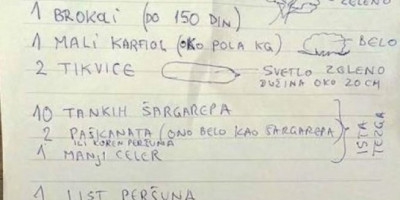 ZELENO
1 BROKOLI (DO 150 DIN)
1 MALI KARFIOL (OKO POLA KG) BELO
2 TIKVICE SVETLO ZELENO
DUŽINA OKO 20 CM
10 TANKIH ŠARGAREPA
2 PAŠKANATA (ONO BELO KAO ŠARGAREPA)
ILI KOREN PERŠUNA
1 MANJI CELER
ISTA
TEZGA
1 LIST PERŠUNA